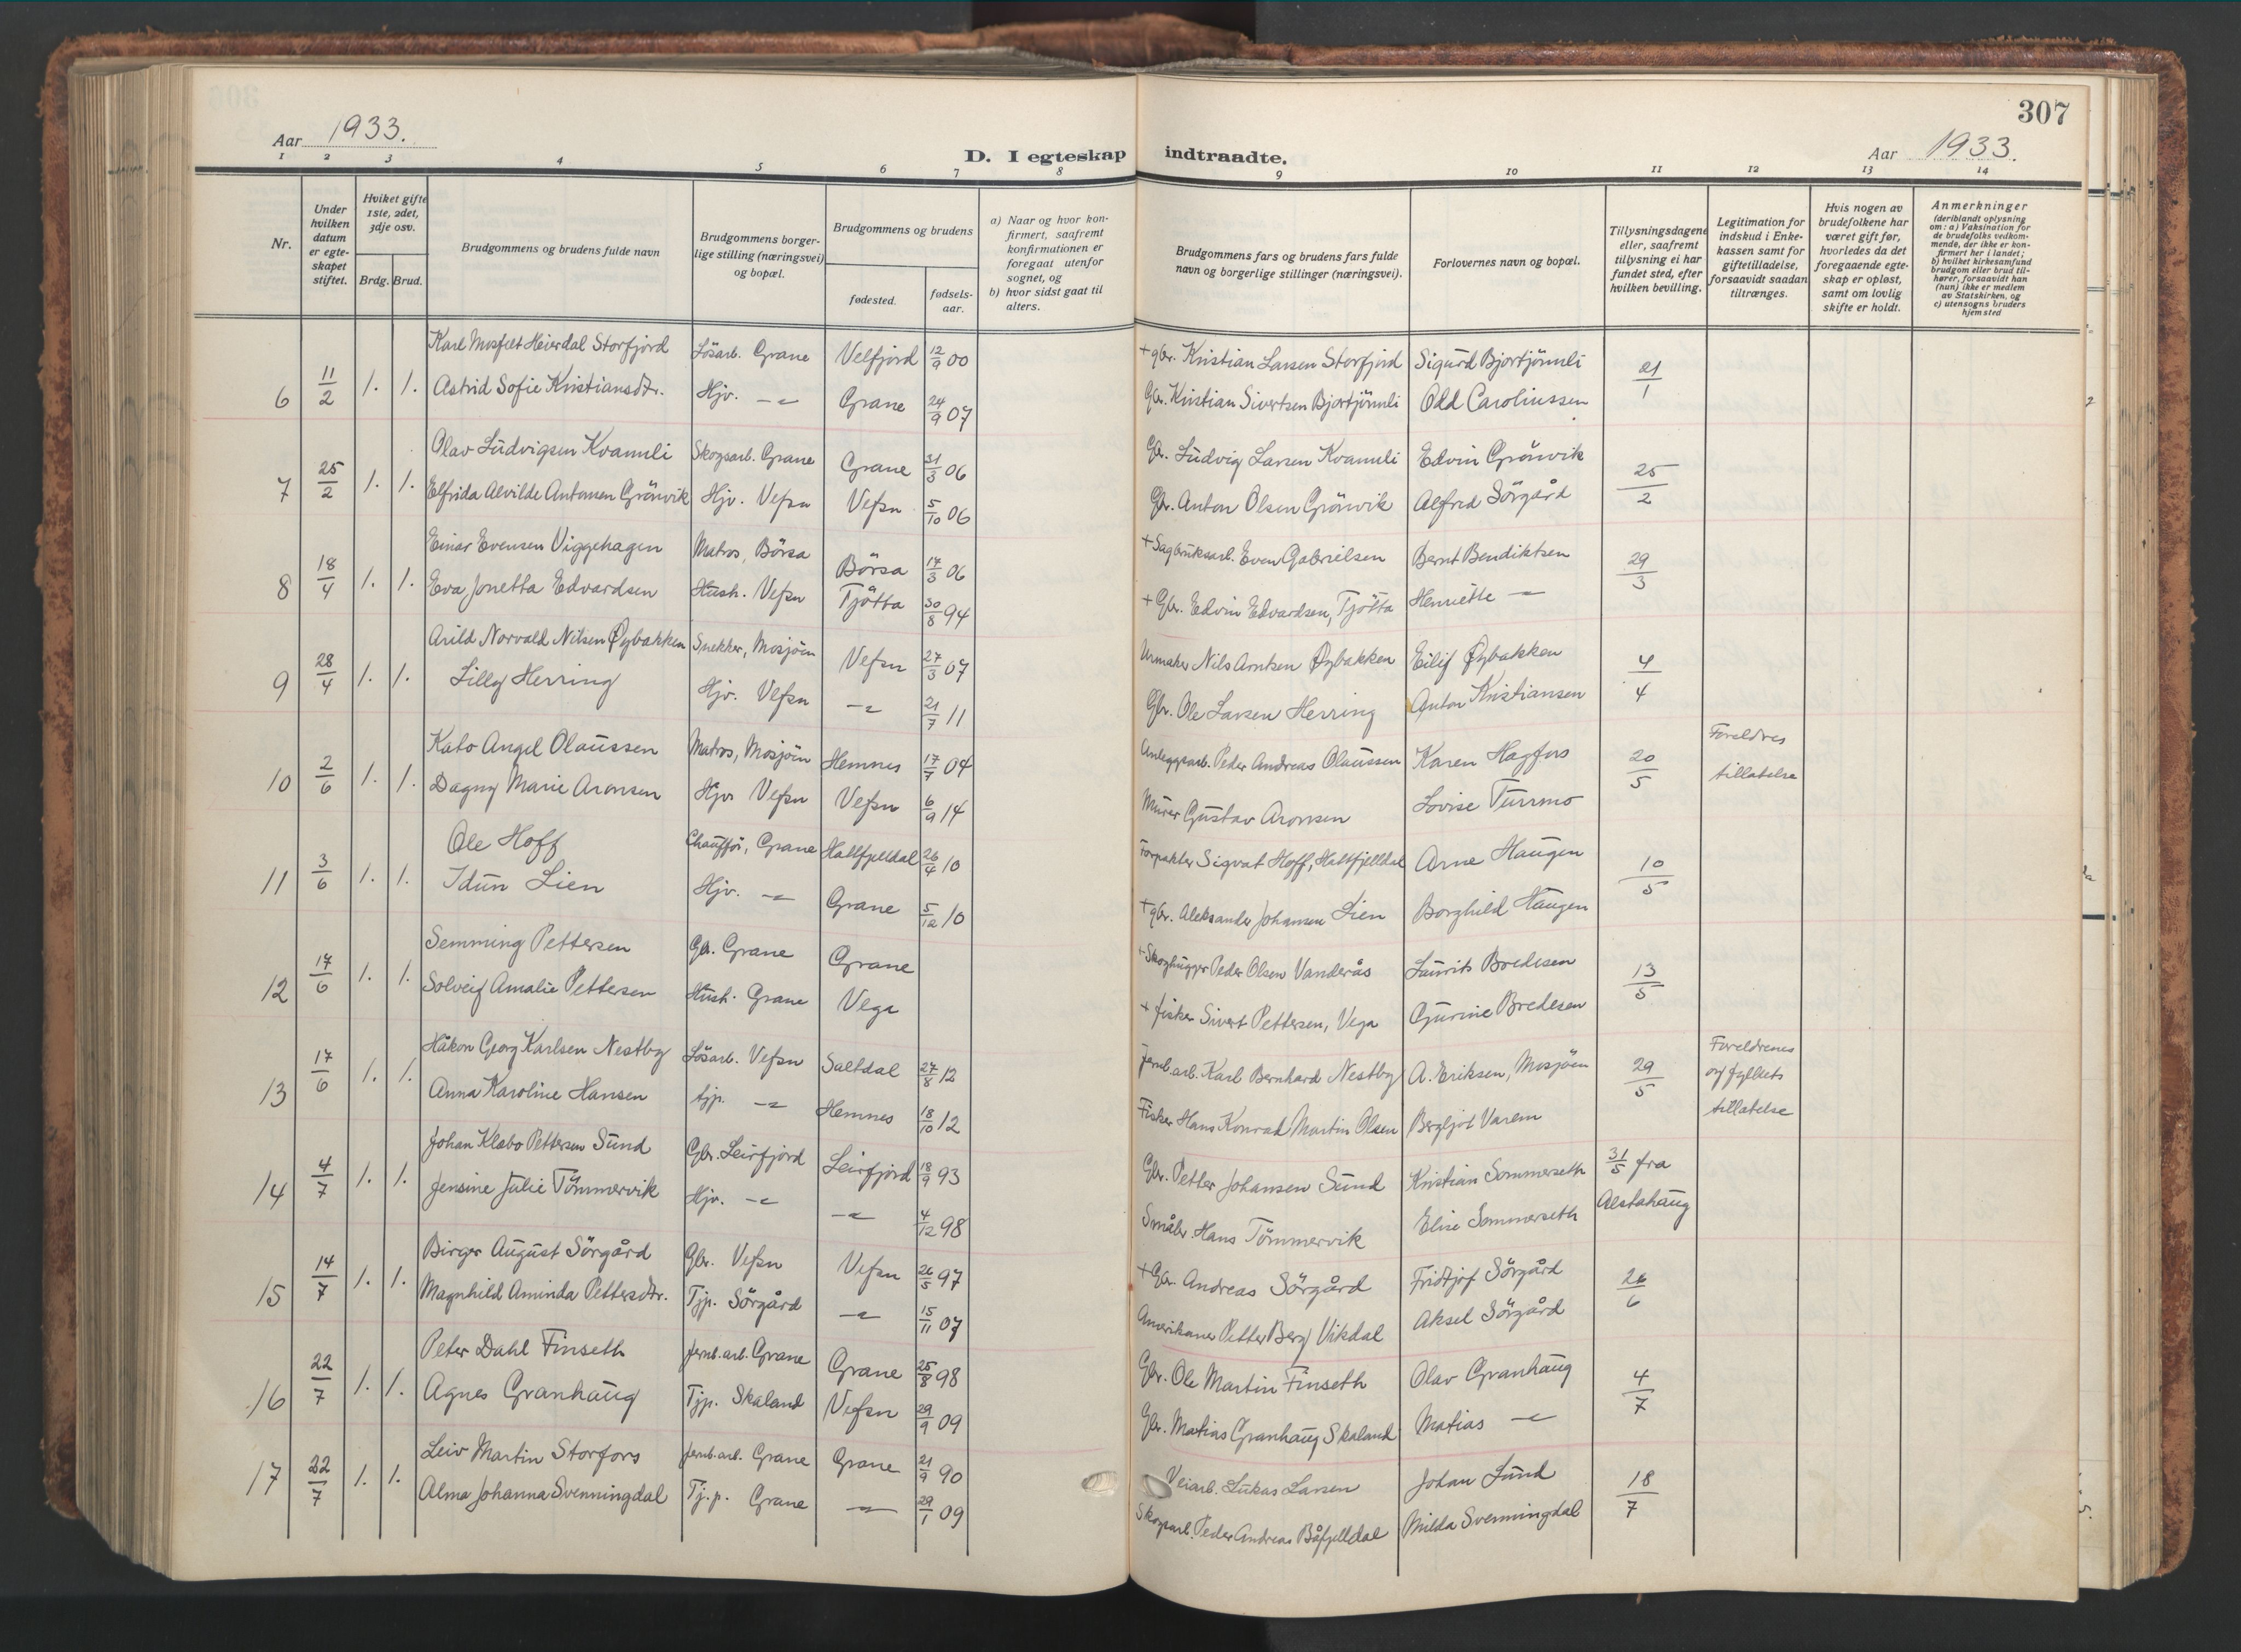 307
Aar 1933.
D. I egteskap indtraadte.
Aar 1933.
1 2 3 4 5 6 7 8 9 10 11 12 13 14
Nr.
Under hvilken datum er egteskapet stiftet.
Hviket gifte 1ste, 2det, 3dje osv.
Brdg. Brud.
Brudgommens og brudens fulde navn
Brudgommens borgerlige stilling (næringsvei) og bopæl.
Brudgommens og brudens
fødested.
fødselsaar.
a) Naar og hvor konfirmert, saafremt konfirmationen er foregaat utenfor sognet, og
b) hvor sidst gaat til alters.
Brudgommens fars og brudens fars fulde navn og borgerlige stillinger (næringsvei).
Forlovernes navn og bopæl.
Tillysningsdagene eller, saafremt tillysning ei har fundet sted, efter hvilken bevilling.
Legitimation for indskud i Enkekassen samt for giftetilladelse, forsaavidt saadan tiltrænges.
Hvis nogen av brudefolkene har været gift før, hvorledes da det foregaaende egteskap er opløst, samt om lovlig skifte er holdt.
Anmerkninger (deriblandt oplysning om: a) Vaksination for de brudefolks vedkommende, der ikke er konfirmert her i landet; b) hvilket kirkesamfund brudgom eller brud tilhører, forsaavidt han (hun) ikke er medlem av Statskirken, og c) utensogns bruders hjemsted
Karl Mosfelt Heierdal Storfjord Lösarb. Grane Velfjord 12/9 00 + gbr. Kristian Larsen Storfjord Sigurd Bjortjönnli
6 11/2 1. 1. Astrid Sofie Kristiansdtr. Hjv. -"- Grane 24/9 07 Gbr. Kristian Sivertsen Bjortjönnli Odd Caroliussen 21/1
Olav Ludvigsen Kvannli Skogsarb. Grane Grane 31/3 06 Gbr. Ludvig Larsen Kvannli Edvin Grönvik
7 25/2 1. 1. Elfrida Alvilde Antonsen Grönvik Hjv. Vefsn Vefsn 5/10 06 Gbr. Anton Olsen Grönvik Alfred Sörgård 25/2
Einar Evensen Viggehagen Matros, Börsa Börsa 17/3 06 + Sagbruksarb. Even Gabrielsen Bernt Bendiktsen
8 18/4 1. 1. Eva Jonetta Edvardsen Hush. Vefsn Tjøtta 30/8 94 + Gbr. Edvin Edvardsen, Tjøtta Henriette -"- 29/3
Arild Norvald Nilsen Øybakken Snekker, Mosjöen Vefsn 27/3 07 Urmaker Nils Arntsen Øybakken Eilif Øybakken
9 28/4 1. 1. Lilly Herring Hjv. Vefsn -"- 21/7 11 Gbr. Ole Larsen Herring Anton Kristiansen 4/4
Kato Angel Olaussen Matros, Mosjöen Hemnes 17/7 04 Anleggsarb. Peder Andreas Olaussen Karen Hagfors Foreldres
10 2/6 1. 1. Dagny Marie Aronsen Hjv Vefsn Vefsn 6/9 14 Murer Gustav Aronsen Lovise Turrmo 20/5 tillatelse
Ole Hoff Chauffør, Grane Hattfjelldal 26/4 10 Forpakter Sigvat Hoff, Hattfjelldal Arne Haugen
11 3/6 1. 1. Idun Lien Hjv. -"- Grane 5/12 10 + gbr. Aleksander Johansen Lien Borghild Haugen 10/5
Semming Pettersen Gbr. Grane Grane + Skoghugger Peder Olsen Vanderås Laurits Bredesen
12 17/6 1. 1. Solveig Amalie Pettersen Hush. Grane Vega + fisker Sivert Pettersen, Vega Gurine Bredesen 13/5
Håkon Georg Karlsen Nestby Lösarb. Vefsn Saltdal 27/8 12 Jernb.arb. Karl Bernhard Nestby A. Eriksen, Mosjöen Foreldrenes
13 17/6 1. 1. Anna Karoline Hansen tjp. -"- Hemnes 18/10 12 Fisker Hans Konrad Martin Olsen Bergljot Varem 29/5 og fylkets tillatelse
Johan Klæbo Pettersen Sund Gbr. Leirfjord Leirfjord 18/9 93 Gbr. Petter Johansen Sund Kristian Sommerseth 31/5 fra
14 4/7 1. 1. Jensine Julie Tömmervik Hjv. -"- -"- 4/12 98 Småbr. Hans Tömmervik Elise Sommerseth Alstahaug
Birger August Sörgård Gbr. Vefsn Vefsn 26/5 97 + Gbr. Andreas Sörgård Fridtjof Sörgård
15 14/7 1. 1. Magnhild Aminda Pettersdtr. Tjp. Sörgård -"- 15/11 07 Amerikaner Petter Berg Vikdal Aksel Sörgård 26/6
Peter Dahl Finseth Jernb.arb. Grane Grane 25/8 98 Gbr. Ole Martin Finseth Olav Granhaug
16 22/7 1. 1. Agnes Granhaug Tjp. Skaland Vefsn 29/9 09 Gbr. Matias Granhaug Skaland Matias -"- 4/7
Leiv Martin Storfors Jernb.arb. Grane Grane 21/9 90 Veiarb. Lukas Larsen Johan Lund
17 22/7 1. 1. Alma Johanna Svenningdal Tj.p. Grane -"- 29/1 09 Skogsarb. Peder Andreas Båfjelldal Milda Svenningdal 18/7